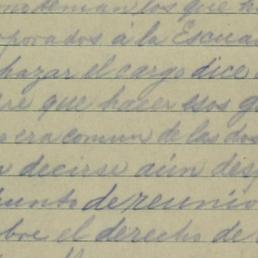 que
porados á la Escua
hazar el cargo dice
re que hacer esos g
era comun de las dos
decirse aún des
punto de reunio
bre el derecho de